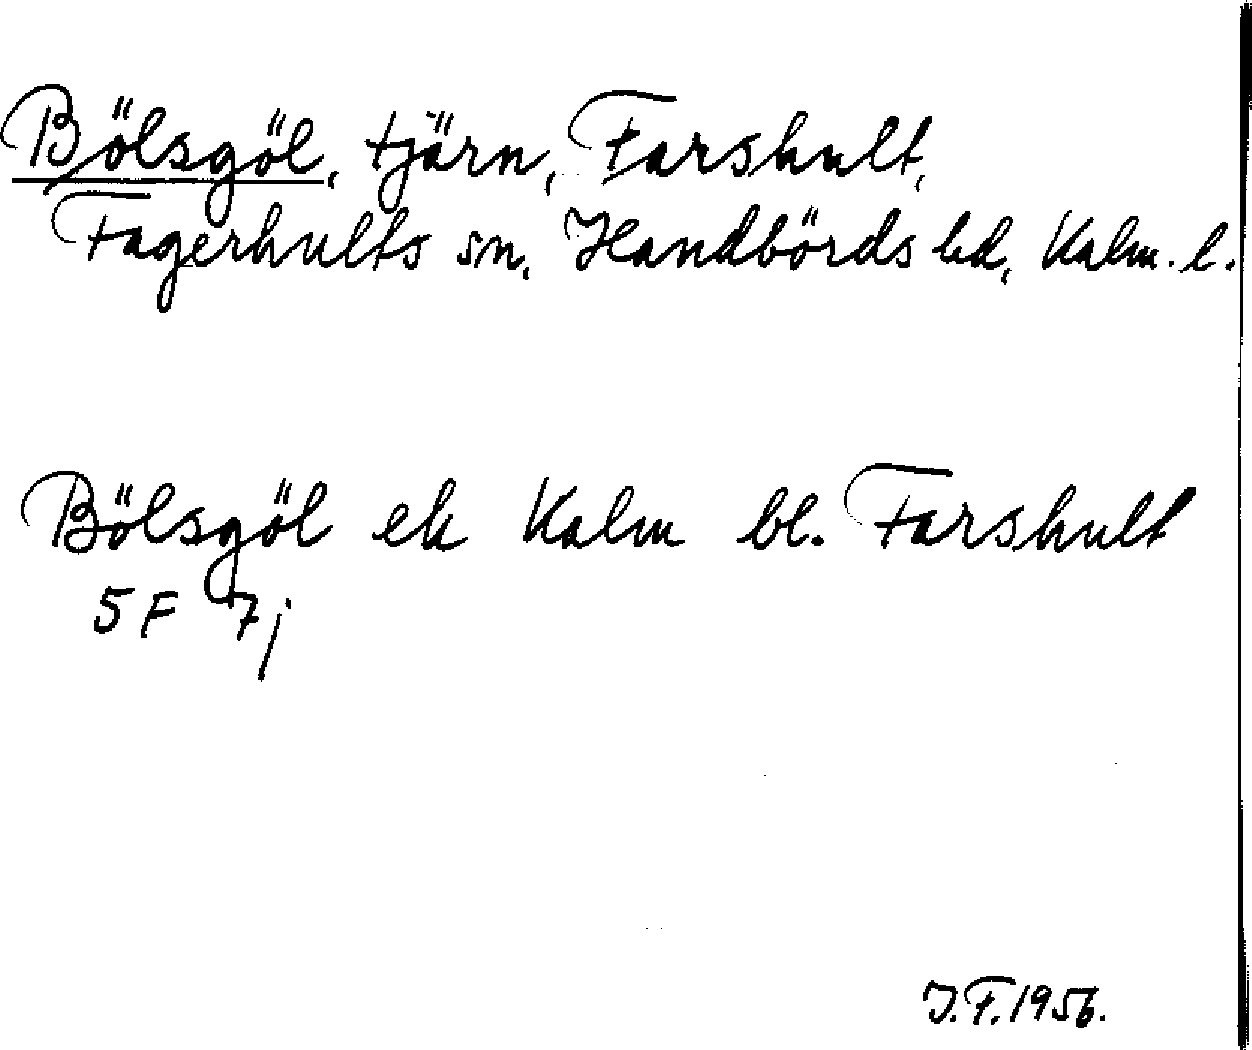 Bölsgöl, tjärn, Farshult,
Fagerhults sn, Handbörds hd, Kalm. l.
Bölsgöl ek Kalm bl. Farshult
5F 7j
J.F. 1956.